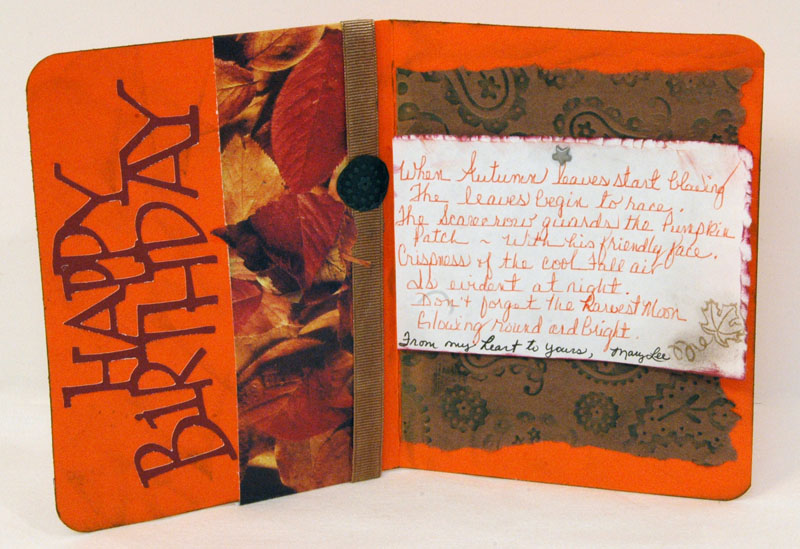 HAPPY
BIRTHDAY
When Autumn leaves start blowing
The leaves begin to race,
The Scarecrow guards the Pumpkin
Patch ~ with his friendly face.
Crispness of the cool Fall air
Is evident at night.
Don't forget the Harvest Moon
Glowing Round and Bright.
From my heart to yours, MaryLee